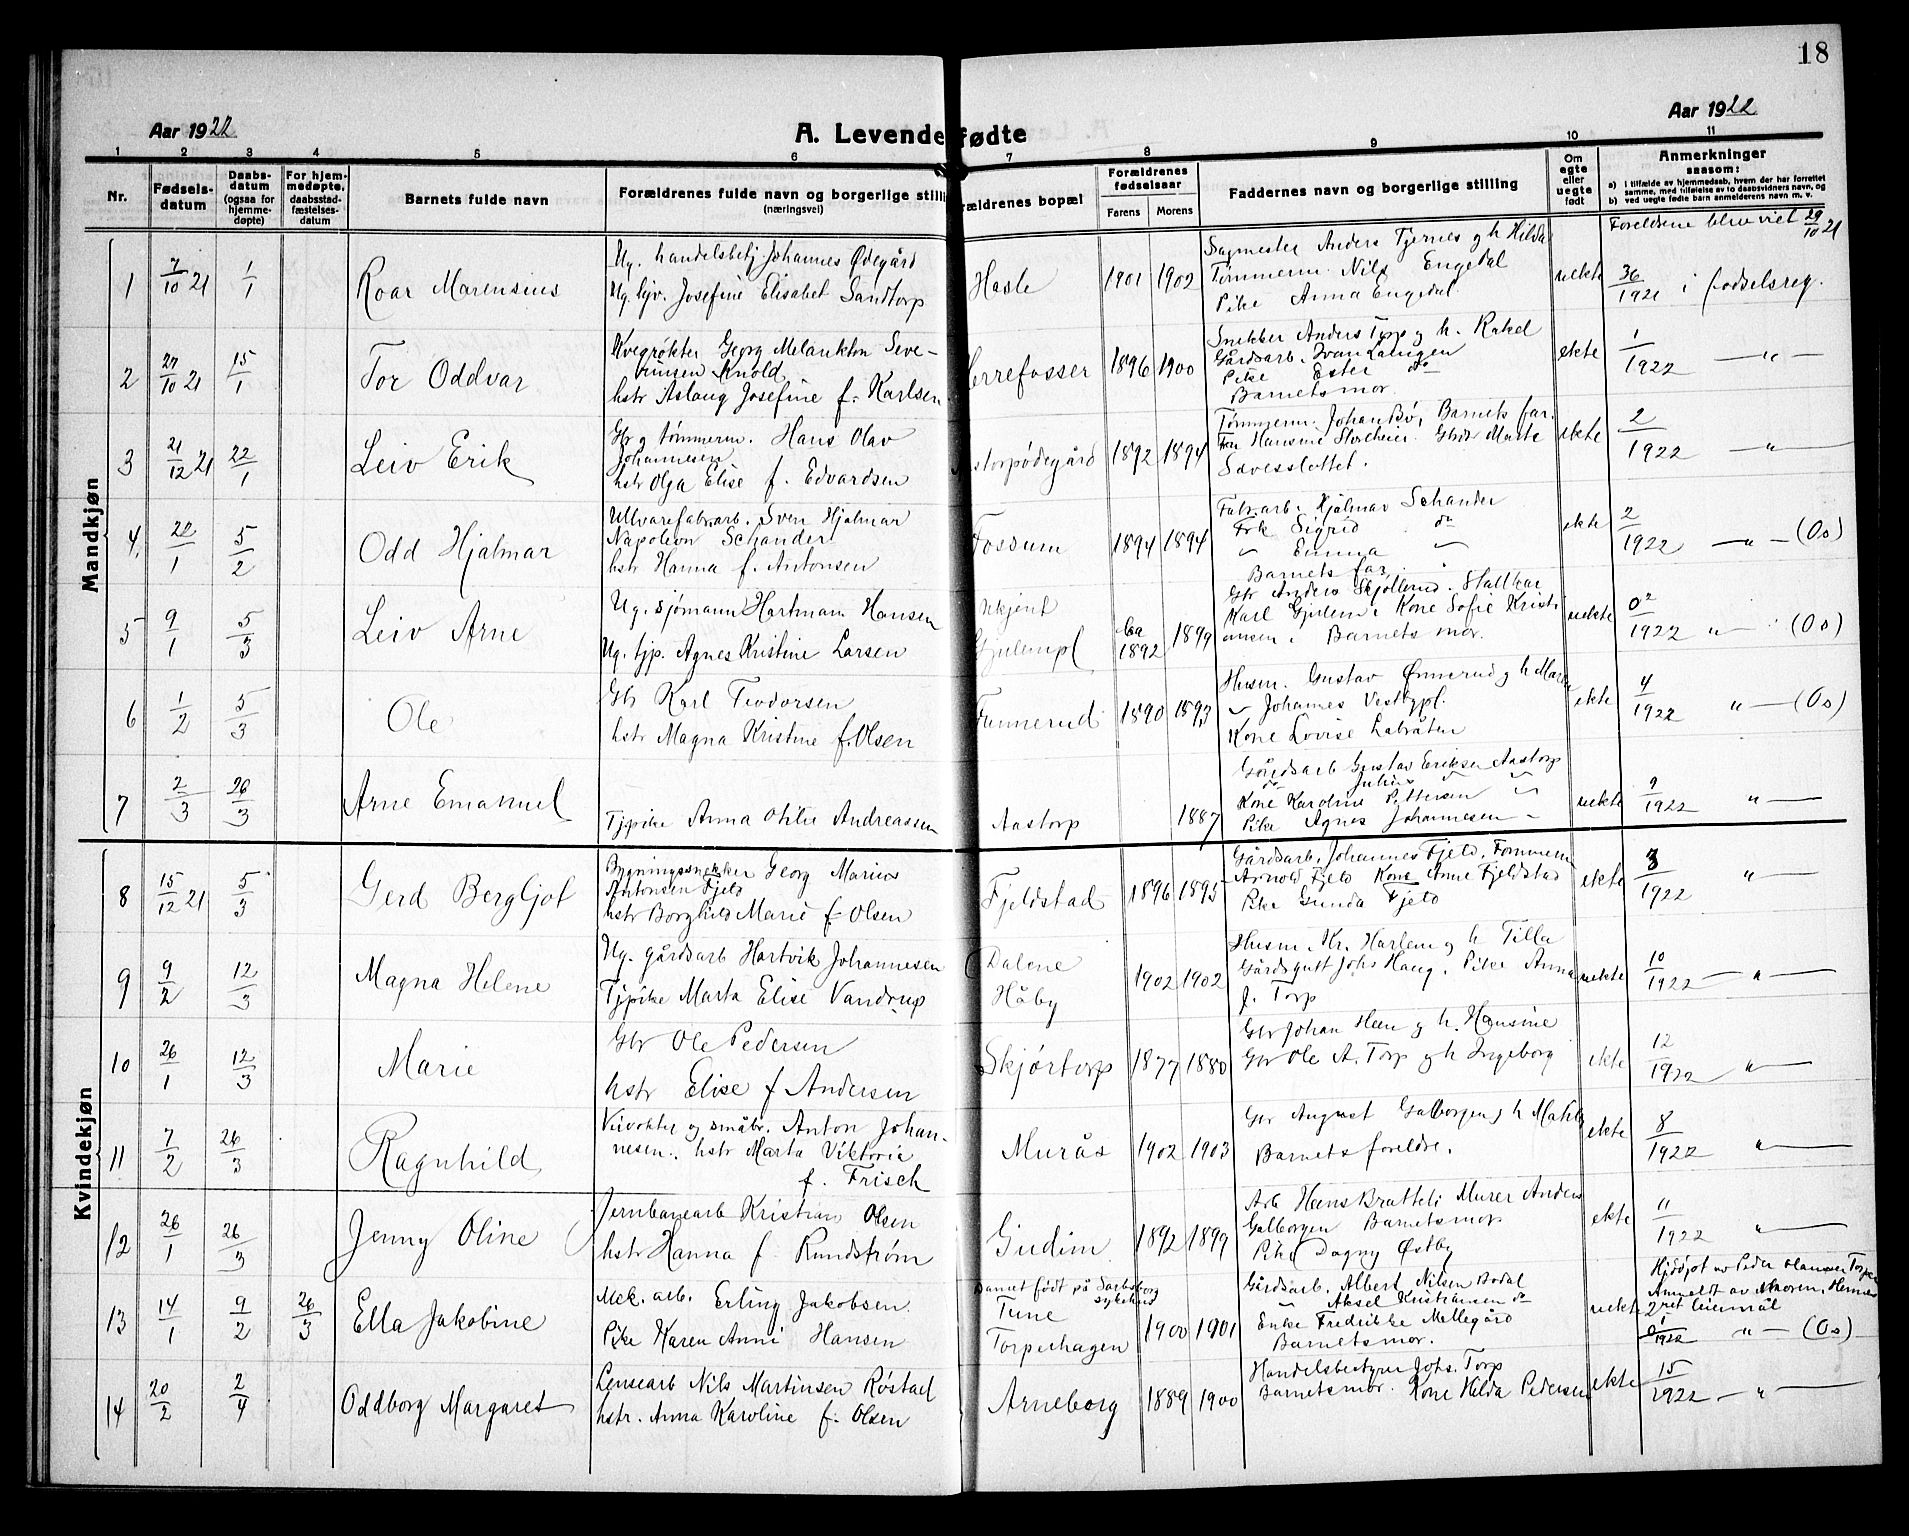 18
Aar 1922
A. Levendefødte
Aar 1922
1 2 3 4 5 6 7 8 9 10 11
Nr.
Fødsels-
datum
Daabs-
datum
(ogsaa for
hjemme-
døpte)
For hjem-
medøpte,
daabsstad-
fæstelses-
datum
Barnets fulde navn
Forældrenes fulde navn og borgerlige stilli
(næringsvei)
rældrenes bopæl
Forældrenes
fødselsaar
Farens Morens
Faddernes navn og borgerlige stilling
Om
egte
eller
uegte
født
Anmerkninger
saasom:
a) i tilfælde av hjemmedaab, hvem der har forrettet
samme, med tilføielse av to daabsvidners navn, og
b) ved uegte fødte barn anmelderens navn m. v.
Mandkjøn
1 7/10 21 1/1 Roar Marensius
Ug. handelsbetj Johannes Ødegård
Ug. tjv. Josefine Elisabet Sandtorp
Hasle 1901 1902
Sagmester Anders Tjernes g h Hilda
Tømmerm. Nils Engedal
Pike Anna Engedal
uekte
Foreldrene blev viet 29/10 21
36/1921 i fødselsreg.
2 27/10 21 15/1 Tor Oddvar
Kvegrøkter Georg Melankton Seve-
rinsen Knold
hstr Aslaug Josefine f. Karlsen
errefosser 1896 1900
Snekker Anders Torp g h. Rakel
Gårdsarb. Ivar
Pike Ester do
Barnets mor.
ekte 1/1922 — " —
3 21/12 21 22/1 Leiv Erik
Gbr g tømmerm. Hans Olav
Johannesen
hstr Olga Elise f. Edvardsen
storpødegård 1892 1894
Tømmerm. Johan Bø, Barnets far.
Fru Hansine Gbdr Marte
ekte 2/1922 — " —
4 22/1 5/2 Odd Hjalmar
Ullvarefabr.arb. Sven Hjalmar
Napoleon Schander
hstr Hanna f. Antonsen
Fossum 1894 1894
Fabr.arb. Hjalmar Schander
Frk Sigrid do
" Emma "
Barnets far.
ekte 2/1922 — " — (Os)
5 9/1 5/3 Leiv Arne
Ug. sjømann Hartman Hansen
Ug. tjp. Agnes Kristine Larsen
ukjent
ca
1892 1899
Gbr Anders Skjøllerud. Stallkar
Karl Gjulem. Kone Sofie Kristi
ansen. Barnets mor.
uekte 02/1922 " — (Os)
6 1/2 5/3 Ole
Gbr Karl Teodorsen
hstr Magna Kristine f. Olsen
Funnerud 1890 1893
Husm. Gustav Ønnerud g h Maren
" Johannes Vestbypl.
Kone Lovise Labråten
ekte 4/1922 " — (Os)
7 2/3 26/3 Arne Emanuel
Tjpike Anna Otilie Andreassen
Aastorp 1887
Gårdsarb Gustav Eriksen Aastorp
do Julius " "
Kone Karoline Pettersen "
Pike Agnes Johannesen "
uekte 9/1922 " —
Kvindekjøn
8 15/12 21 5/3 Gerd Bergljot
Bygningssnekker Georg Marius
Antonsen Fjeld
hstr Borghild Marie f. Olsen
Fjeldstad 1896 1895
Gårdsarb. Johannes Fjeld, Tømmerm
Arnold Fjeld Kone Anne Fjeldstad
Pike Gunda Fjeld
ekte 3/1922 " —
9 9/2 12/3 Magna Helene
Ug. gårdsarb Hartvik Johannesen
Tjpike Marta Elise Vandrup
Dalene
Håby
1902 1902
Husm. Kr. Harlem g h Tilla
Gårdsgutt Johs Haug. Pike Anna
J. Torp
uekte 10/1922 — " —
10 26/1 12/3 Marie
Gbr Ole Pedersen
hstr Elise f Andersen
Skjørtorp 1877 1880
Gbr Johan Heen g h. Hansine
Gbr Ole A. Torp g h Ingeborg
ekte 12/1922 " —
11 7/2 26/3 Ragnhild
og småbr. Anton Johan-
nesen. hstr Marta Viktoria
f. Frisch
Murås 1902 1903
Gbr August Galborgen g h Matilde
Barnets foreldre.
ekte 8/1922 " —
12 26/1 26/3 Jenny Oline
Jernbanearb Kristian Olsen
hstr Hanna f. Rundstrøm
Gudim 1892 1899
Arb Hans Bratteli Murer Anders
Galborgen Barnets mor
Pike Dagny Østby
ekte 11/1922 " —
13 14/1 9/2 26/3 Ella Jakobine
Mek. arb. Erling Jakobsen
Pike Karen Anni Hansen
Barnet født på Sarpsborg
sykehus
Tune
Torperhagen
1900 1901
Gårdsarb. Albert Nilsen Bodal
" Aksel Kristiansen do
Enke Fredrikke Mellegård
Barnets mor.
uekte
Hjdøpt av Peder Hansen Torper
Anmeldt av Moren. Hennes
2net leiermål
01/1922 " — (Os)
14 20/2 2/4 Oddborg Margaret
Lensearb Nils Martinsen Røstad
hstr. Anna Karoline f. Olsen
Arneborg 1889 1900
Handelsbestyrer Johs. Torp
Barnets mor. Kone Hilda Pedersen
ekte 15/1922 — " —